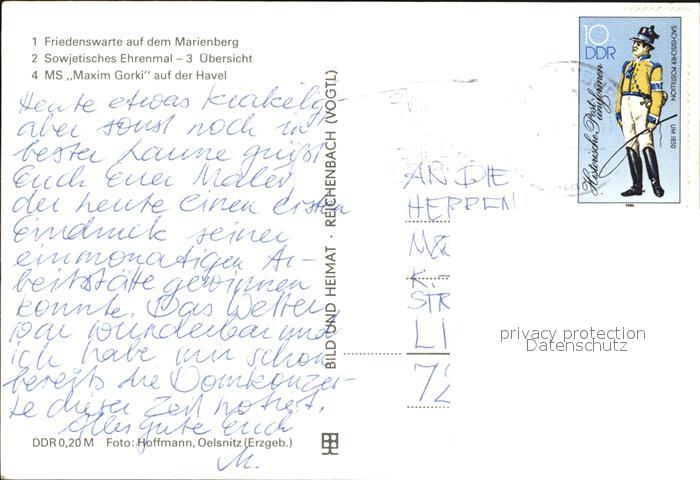 1 Friedenswarte auf dem Marienberg
2 Sowjetisches Ehrenmal – 3 Übersicht
4 MS „Maxim Gorki" auf der Havel
Heute etwas krakelig-
aber sonst noch in
bester Laune grüßt
Euch Euer Maler,
der heute einen ersten
Eindruck seiner
einmonatigen Ar-
beitsstätte gewinnen
konnte. Das Wetter
war wunderbar und
ich habe mir schon
bereits die Domkonzer-
te dieser Zeit notiert.
Alles gute Euch
M.
DDR 0,20 M Foto: Hoffmann, Oelsnitz (Erzgeb.)
BILD UND HEIMAT · REICHENBACH (VOGTL)
10
DDR
Historische Post-
uniformen
SÄCHSISCHER POSTILLION UM 1850
1986
AN DIE
HERREN
K.-
STR
LI
72
privacy protection
Datenschutz